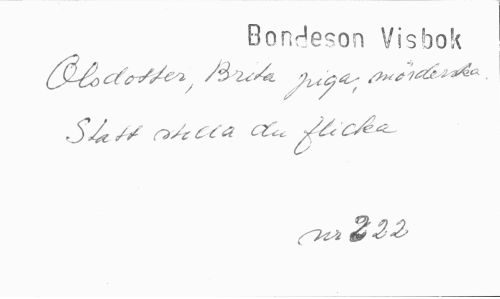 Bondeson Visbok
Olsdotter, Brita piga, mörderska.
Statt stilla du flicka
nr 222